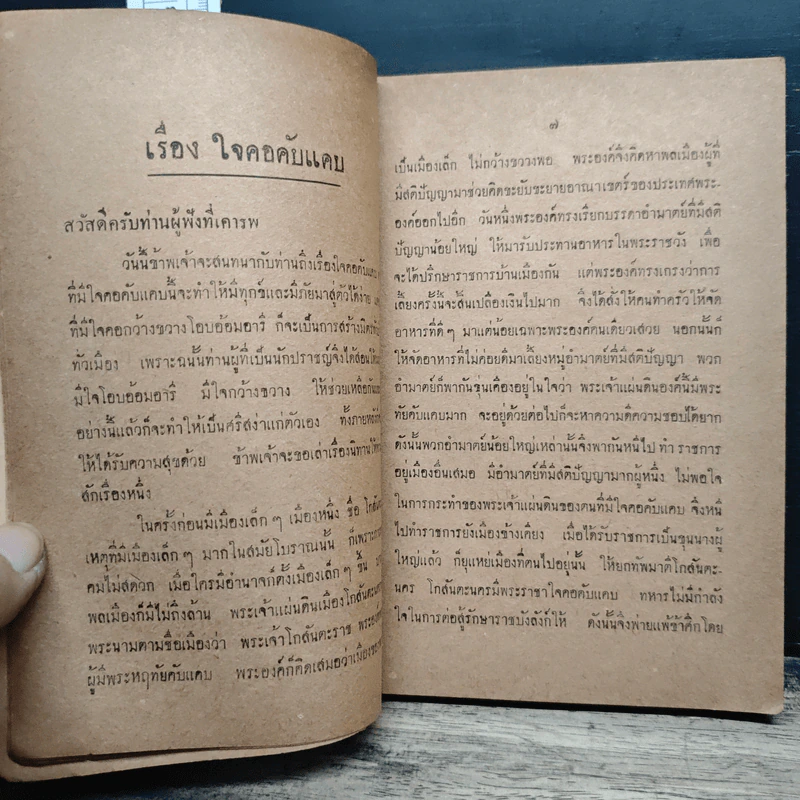 เรื่อง ใจคอคับแคบ
สวัสดีครับท่านผู้ฟังที่เคารพ
วันนี้ข้าพเจ้าจะสนทนากับท่านถึงเรื่องใจคอคับแคบ
ที่มีใจคอคับแคบนี้จะทำให้มีทุกข์และมีภัยมาสู่ตัวได้ง่าย
ที่มีใจคอกว้างขวางโอบอ้อมอารี ก็จะเป็นการสร้างมิตร
ทั่วเมือง เพราะฉนั้นท่านผู้ที่เป็นนักปราชญ์จึงได้สอน
มีใจโอบอ้อมอารี มีใจกว้างขวาง ให้ช่วยเหลือกัน
อย่างนี้แล้วก็จะทำให้เป็นศรีสง่าแก่ตัวเอง ทั้งภาย
ให้ได้รับความสุขด้วย ข้าพเจ้าจะขอเล่าเรื่องนิทาน
สักเรื่องหนึ่ง
ในครั้งก่อนมีเมืองเล็กๆ เมืองหนึ่ง ชื่อ โกสัน
เหตุที่มีเมืองเล็กๆ มากในสมัยโบราณนั้น ก็เพราะการ
คมไม่สดวก เมื่อใครมีอำนาจก็ตั้งเมืองเล็กๆ ขึ้น
พลเมืองก็มีไม่ถึงล้าน พระเจ้าแผ่นดินเมืองโกสันตะนคร
พระนามตามชื่อเมืองว่า พระเจ้าโกสันตะราช พระองค์
ผู้มีพระหฤทัยคับแคบ พระองค์ก็คิดเสมอว่าเมืองของ
๗
เป็นเมืองเล็ก ไม่กว้างขวางพอ พระองค์จึงคิดหาพลเมืองผู้ที่
มีสติปัญญามาช่วยคิดขะยับขะยายอาณาเขตร์ของประเทศพระ-
องค์ออกไปอีก วันหนึ่งพระองค์ทรงเรียกบรรดาอำมาตย์ที่มีสติ
ปัญญาน้อยใหญ่ ให้มารับประทานอาหารในพระราชวัง เพื่อ
จะได้ปรึกษาราชการบ้านเมืองกัน แต่พระองค์ทรงเกรงว่าการ
เลี้ยงครั้งนี้จะสิ้นเปลืองเงินไปมาก จึงได้สั่งให้คนทำครัวให้จัด
อาหารที่ดีๆ มาแต่น้อยเฉพาะพระองค์คนเดียวเสวย นอกนั้นก็
ให้จัดอาหารที่ไม่ค่อยดีมาเลี้ยงหมู่อำมาตย์ที่มีสติปัญญา พวก
อำมาตย์ก็พากันขุ่นเคืองอยู่ในใจว่า พระเจ้าแผ่นดินองค์นี้มีพระ
ทัยคับแคบมาก จะอยู่ด้วยต่อไปก็จะหาความดีความชอบได้ยาก
ดังนั้นพวกอำมาตย์น้อยใหญ่เหล่านั้นจึงพากันหนีไป ทำ ราชการ
อยู่เมืองอื่นเสมอ มีอำมาตย์ที่มีสติปัญญามากผู้หนึ่ง ไม่พอใจ
ในการกระทำของพระเจ้าแผ่นดินของตนที่มีใจคอคับแคบ จึงหนี
ไปทำราชการยังเมืองข้างเคียง เมื่อได้รับราชการเป็นขุนนางผู้
ใหญ่แล้ว ก็ยุแหย่เมืองที่ตนไปอยู่นั้น ให้ยกทัพมาตีโกสันตะ-
นคร โกสันตะนครมีพระราชาใจคอคับแคบ ทหารไม่มีกำลัง
ใจในการต่อสู้รักษาราชบังลังก์ให้ ดังนั้นจึงพ่ายแพ้ข้าศึกโดย